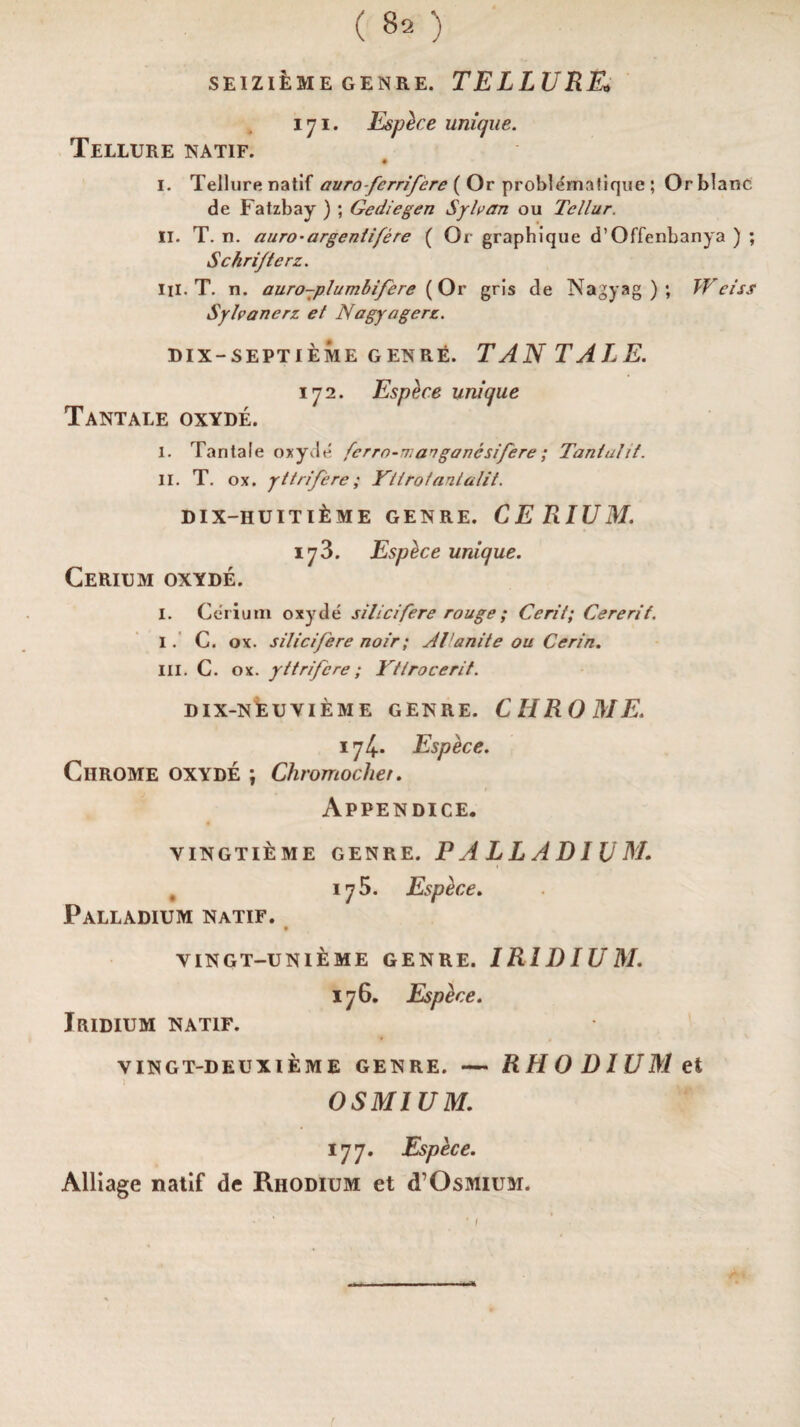 ( 82 )
SEIZIÈME GENRE. TELLURE.
171. Espèce unique.
TELLURE NATIF.
I. Tellure natif auro-ferrifère ( Or problématique ; Or blanc
de Fatzbay ) ; Gediegen Sylvan ou Tellur.
II. T. n. auro-argentifère ( Or graphique d'Offenbanya ) ;
Schrifterz.
III. T. n. auro-plumbifere ( Or gris de Nagyag ) ; Weiss
Sylvanerz et Nagyagerz.
DIX-SEPTIÈME GENRE. TANTALE.
172. Espèce unique
TANTALE OXYDÉ.
I. Tantale oxydé ferro-manganésifere ; Tantalit.
II. T. ox. yttrifere ; Yttrotantalit.
DIX-HUITIÈME GENRE. CERIUM.
173. Espèce unique.
CERIUM OXYDÉ.
I. Cérium oxydé silicifere rouge ; Cerit; Cererit.
I. C. ox. silicifere noir ; Allanite ou Cerin.
III. C. ox. yttrifere ; Yttrocerit.
DIX-NEUVIÈME GENRE. CHROME.
174. Espèce.
CHROME OXYDÉ ; Chromocher.
APPENDICE.
VINGTIÈME GENRE. PALLADIUM.
175. Espèce.
PALLADIUM NATIF.
VINGT-UNIÈME GENRE. IRIDIUM.
176. Espèce.
IRIDIUM NATIF.
VINGT-DEUXIÈME GENRE. — RHODIUM et
OSMIUM.
177. Espèce.
Alliage natif de RHODIUM et d'OSMIUM.